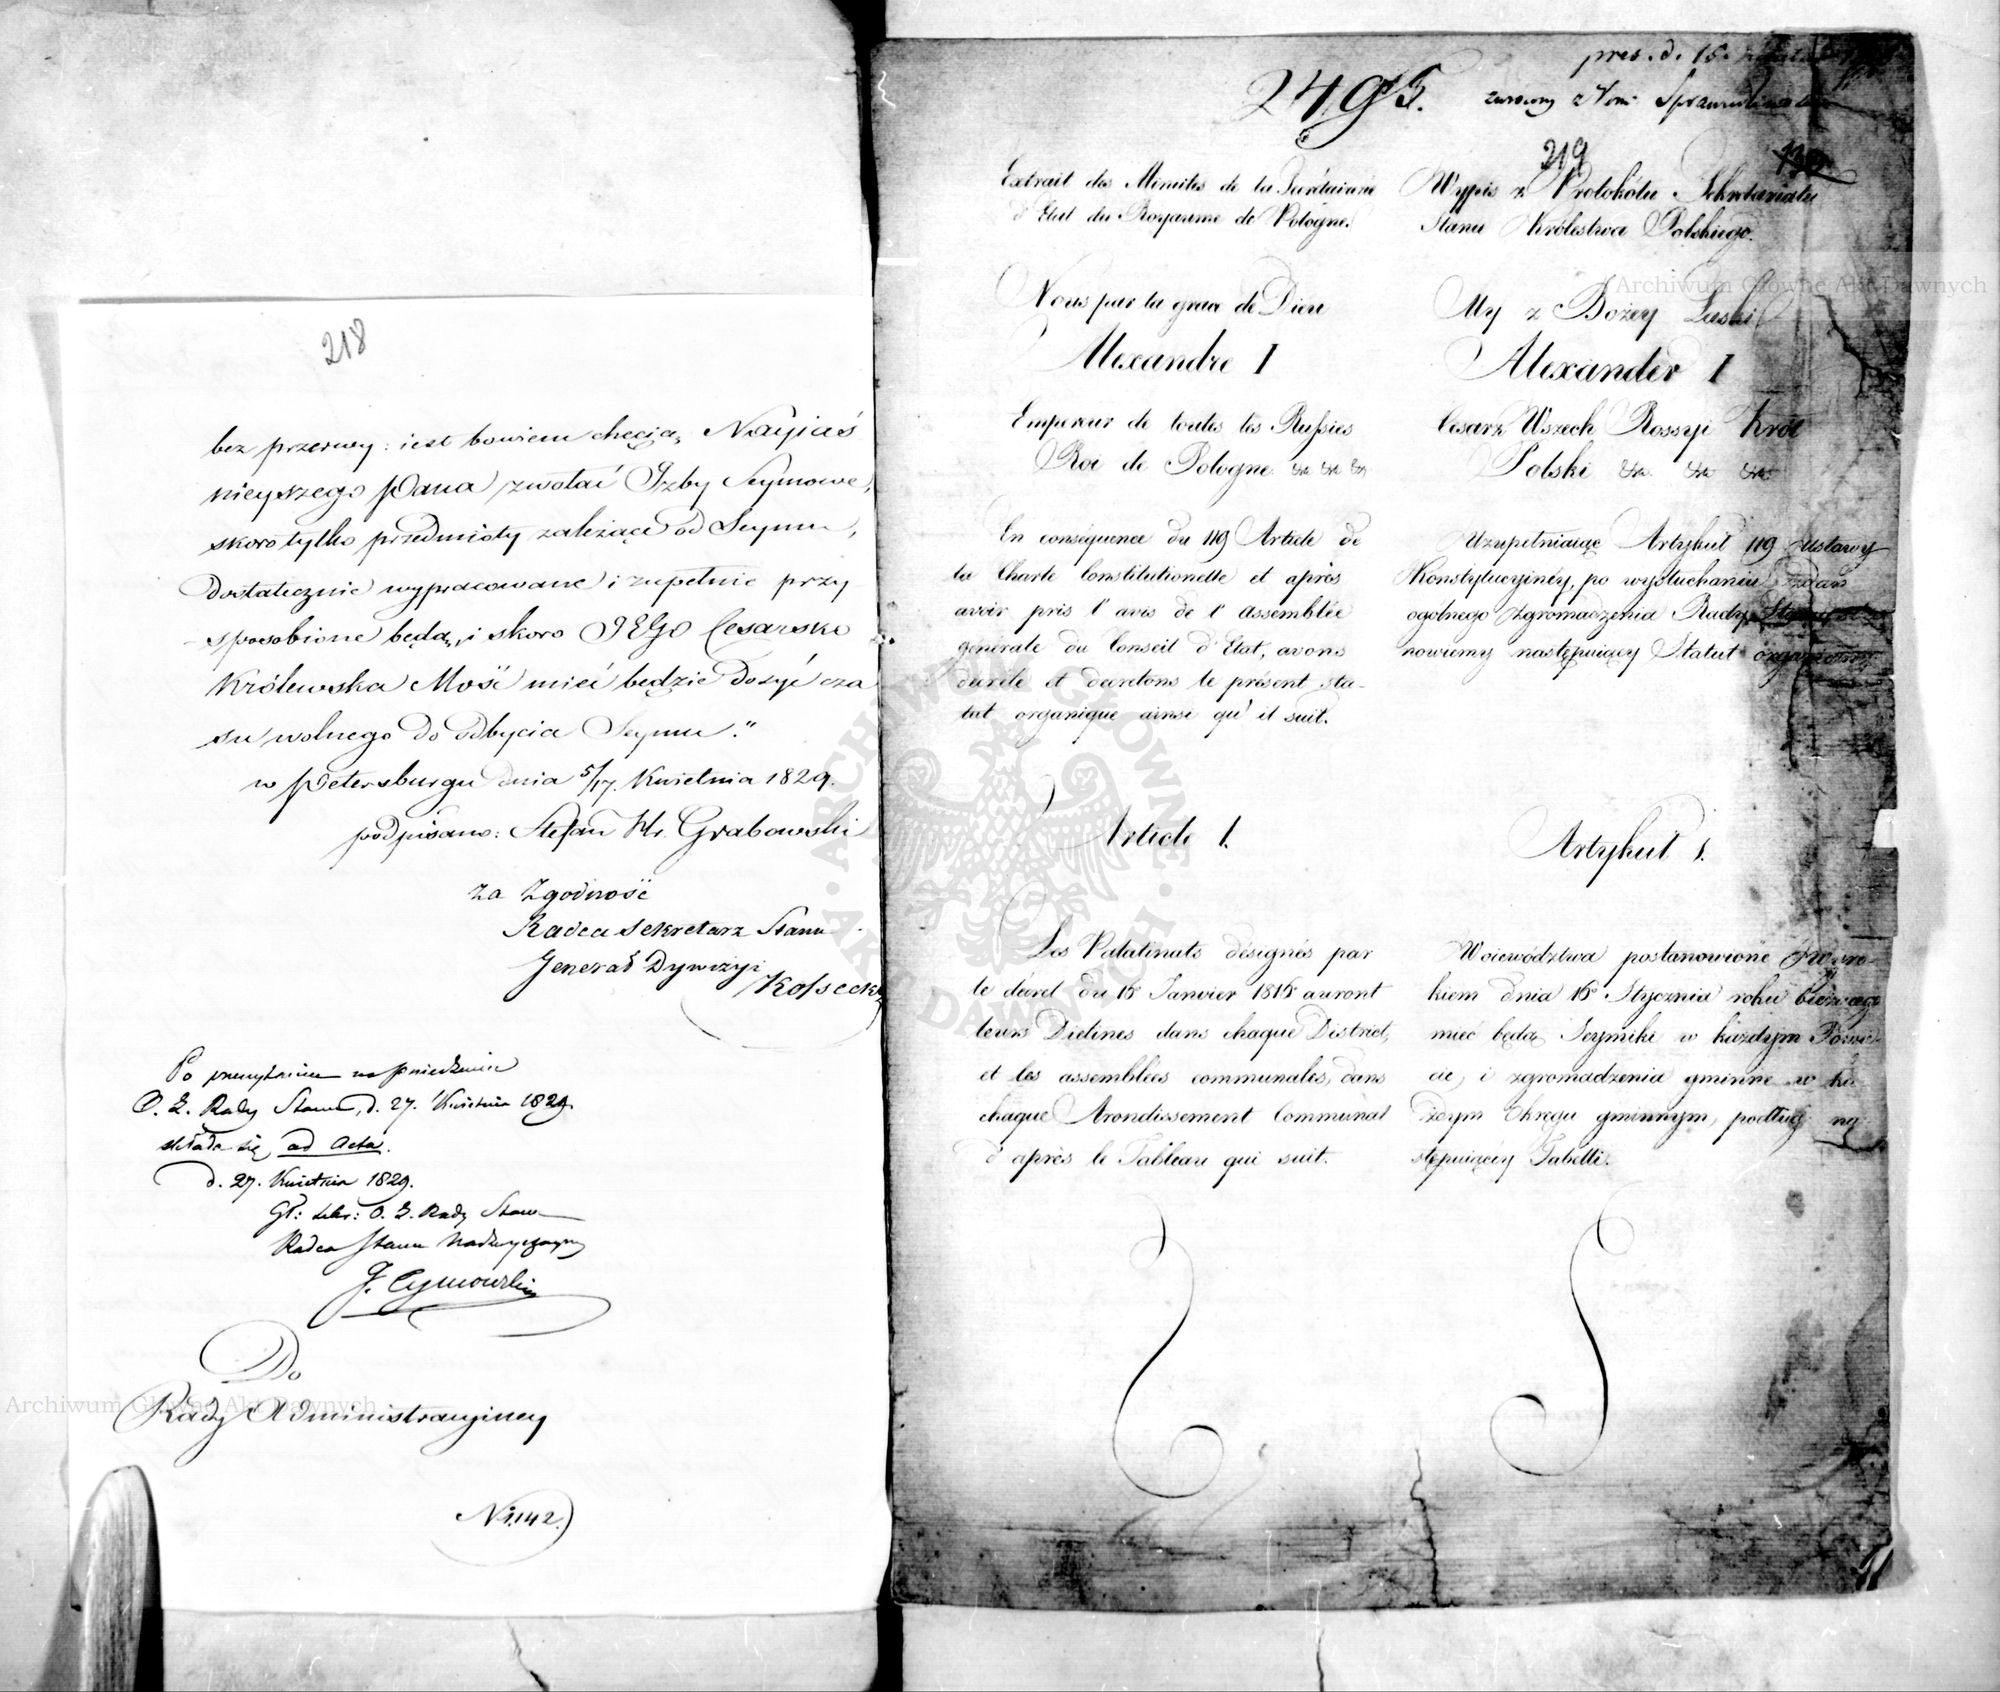 218
bez przerwy: iest bowiem chęcią, Nayiaś
nieyszego Pana zwołać Izby Seymowe,
skoro tylko przedmioty zależące od Seymu,
dostatecznie wypracowane i zupełnie przy
sposobione będą, i skoro JEGO Cesarsko
Królewska Mość mieć będzie dosyć cza
su wolnego do odbycia Seymu."
w Petersburgu dnia 5/17. Kwietnia 1829.
podpisano: Stefan Hr. Grabowski
za Zgodność
Radca Sekretarz Stanu
Generał Dywizyi
Kossecki
Po przeczytaniu na posiedzeniu
O. Z. Rady Stanu, d. 27. Kwietnia 1829.
składa się ad Acta.
d. 27. Kwietnia 1829.
Gł: Sekr: O. Z. Rady Stanu
Radca Stanu Nadzwyczayny
Do
Rady Administracyiney
N 1,142.)
2495.
pres. d. 15.
zwrócony z Kom: Sprawiedliwości
219
Extrait des Minutes de la Secrétairerie
d'Etat du Royaume de Pologne.
Nous par la grace de Dieu
Alexandre I
Empereur de toutes les Russies
Roi de Pologne &a &a &a
En conséquence du 119 Article de
la Charte Constitutionelle et après
avoir pris l'avis de l'assemblée
generale du Conseil d'Etat, avons
decrété et decretons le présent sta-
tut organique ainsi qu'il suit.
Article 1.
Les Palatinats désignés par
le décret du 16 Janvier 1816 auront
leurs Dietines dans chaque District,
et les assemblées communales, dans
chaque Arondissement Communal
d'après le Tableau qui suit.
Wypis z Protokółu Sekretariatu
Stanu Królestwa Polskiego.
My z Bożey Łaski
Alexander I
Cesarz Wszech Rossyi Król
Polski &a. &a &a.
Uzupełniaiąc Artykuł 119 Ustawy
Konstytucyiney, po wysłuchaniu zdań
ogólnego zgromadzenia Rady Stanu posta
nowiemy następuiący Statut organiczny
Artykuł 1.
Woiewództwa postanowione Wyro-
kiem dnia 16 Stycznia roku bieżącego
mieć będą Seymiki w każdym Powie
cie, i zgromadzenia gminne w ka
żdym Okręgu gminnym, podług na
stępuiącey Tabelli.
Archiwum Główne Akt Dawnych
Archiwum Główne Akt Dawnych
ARCHIWUM GŁÓWNE AKT DAWNYCH